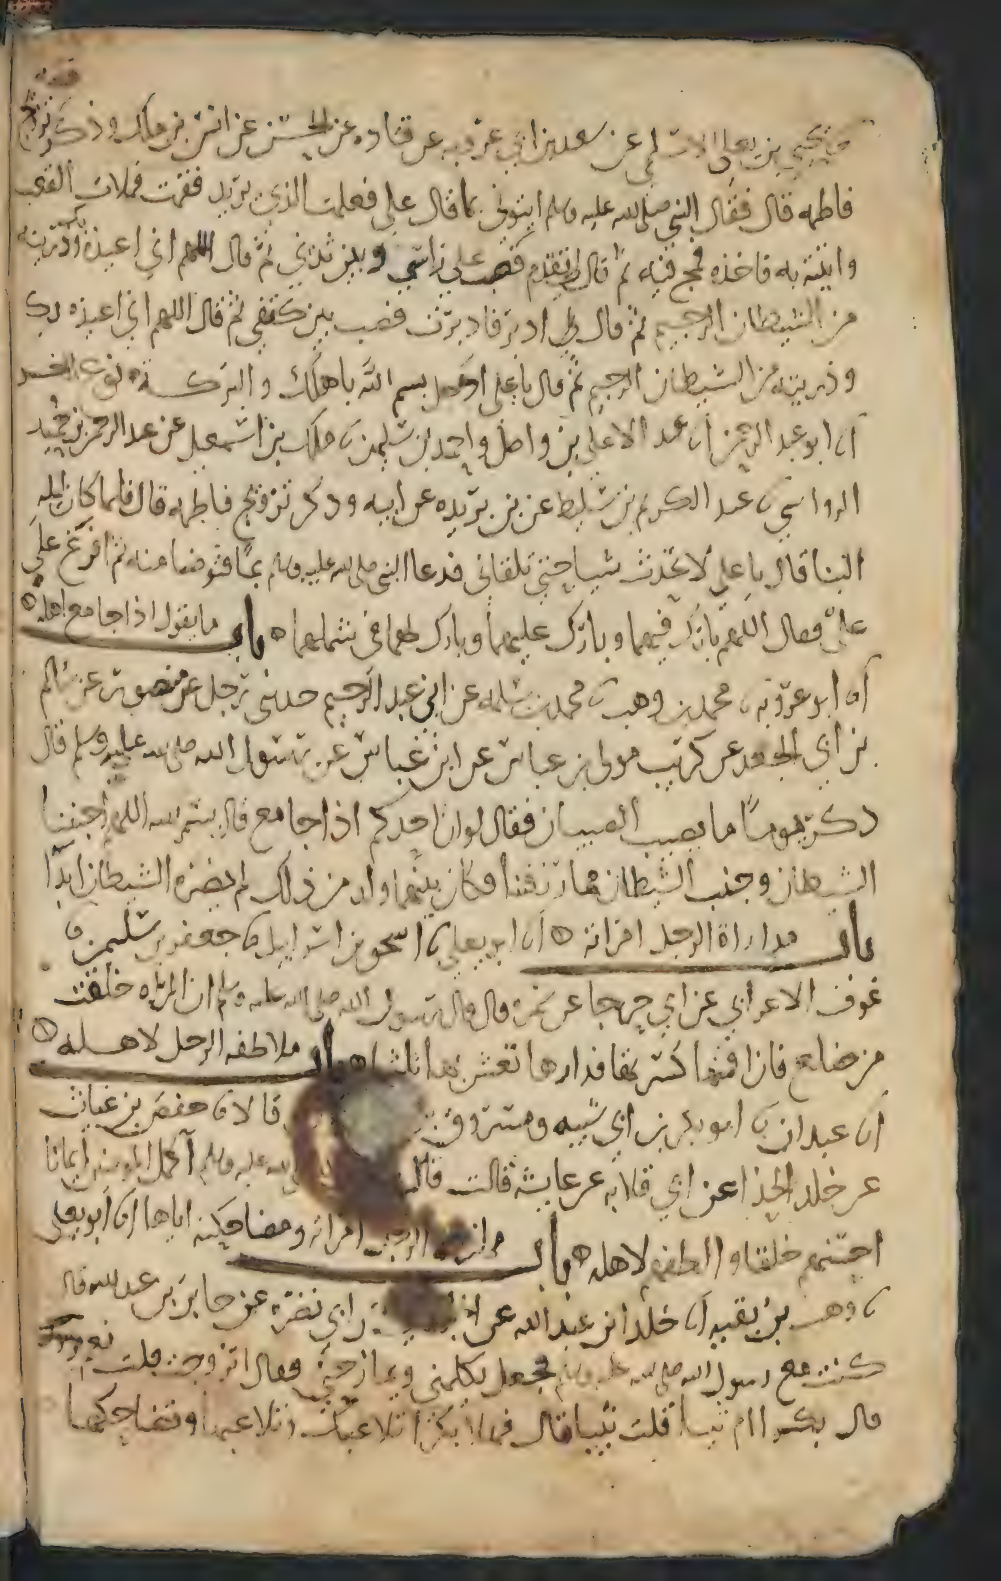 يحيى بن يعلى الاسلمي عن سعيد بن ابي عروبه عن قتاده عن الحسن عن انس بن ملك وذكر تزويج
فاطمه قال فقال النبي صلى الله عليه وسلم ايتوني بما قال علي فعلمت الذي يريد فقمت فملات القعب
واتيته به فاخذه فمج فيه ثم قال لي تقدم فصب على راسي وبين ثديي ثم قال اللهم اني اعيذه بك وذريته
من الشيطان الرجيم ثم قال لي ادبر فادبرت فصب بين كتفي ثم قال اللهم اني اعيذه بك
وذريته من الشيطان الرجيم ثم قال يا علي ادخل بسم الله باهلك والبركة نوع اخر
انا ابو عبد الرحمن انا عبد الاعلى بن واصل واحمد بن سليمن ثنا ملك بن اسمعيل عن عبد الرحمن بن حميد
الرواسي ثنا عبد الكريم بن سليط عن بن بريده عن ابيه وذكر تزويج فاطمه قال فلما كان ليله
البنا قال يا علي لا تحدث شيا حتى تلقاني فدعا النبي صلى الله عليه وسلم بما فتوضا منه ثم افرغ على
علي فقال اللهم بارك فيهما وبارك عليهما وبارك لهما في شملهما ه باب ما يقول اذا جامع اهله ه
انا ابو عروبه ثنا محمد بن وهب ثنا محمد بن سلمه عن ابي عبد الرحيم حدثني رجل عن منصور عن سالم
بن ابي الجعد عن كريب مولى بن عباس عن ابن عباس عن رسول الله صلى الله عليه وسلم قال
ذكر يوما ما يصيب الصبيان فقال لو ان احدكم اذا جامع قال بسم الله اللهم اجنبنا
الشيطان وجنب الشيطان مما رزقتنا فكان بينهما ولد من ذلك لم يضره الشيطان ابدا
باب مداراة الرجل امراته ه انا ابو يعلى ثنا اسحق بن اسرايل ثنا جعفر بن سليمن ثنا
عوف الاعرابي عن ابي رجا عن سمره قال قال رسول الله صلى الله عليه وسلم ان المراه خلقت
من ضلع فان اقمتها كسرتها فدارها تعش بها ثلثا ه باب ملاطفه الرجل لاهله ه
انا عبدان ثنا ابو بكر بن ابي شيبه ومسروق بن قالا ثنا حفص بن غياث
عن خلد الحذا عن ابي قلابه عن عايشه قالت قال الله عليه وسلم اكمل المومنين ايمانا
احسنهم خلقا والطفهم لاهله ه باب الرجل امراته ومضاحكته اياها انا ابو يعلى
ثنا وهب بن بقيه انا خلد بن عبد الله عن ابي نضره عن جابر بن عبد الله قال
كنت مع رسول الله صلى الله عليه وسلم فجعل يكلمني ويمازحني فقال اتزوجت قلت نعم
قال بكرا ام ثيبا قلت ثيبا قال فهلا بكرا تلاعبك وتلاعبها وتضاحكها